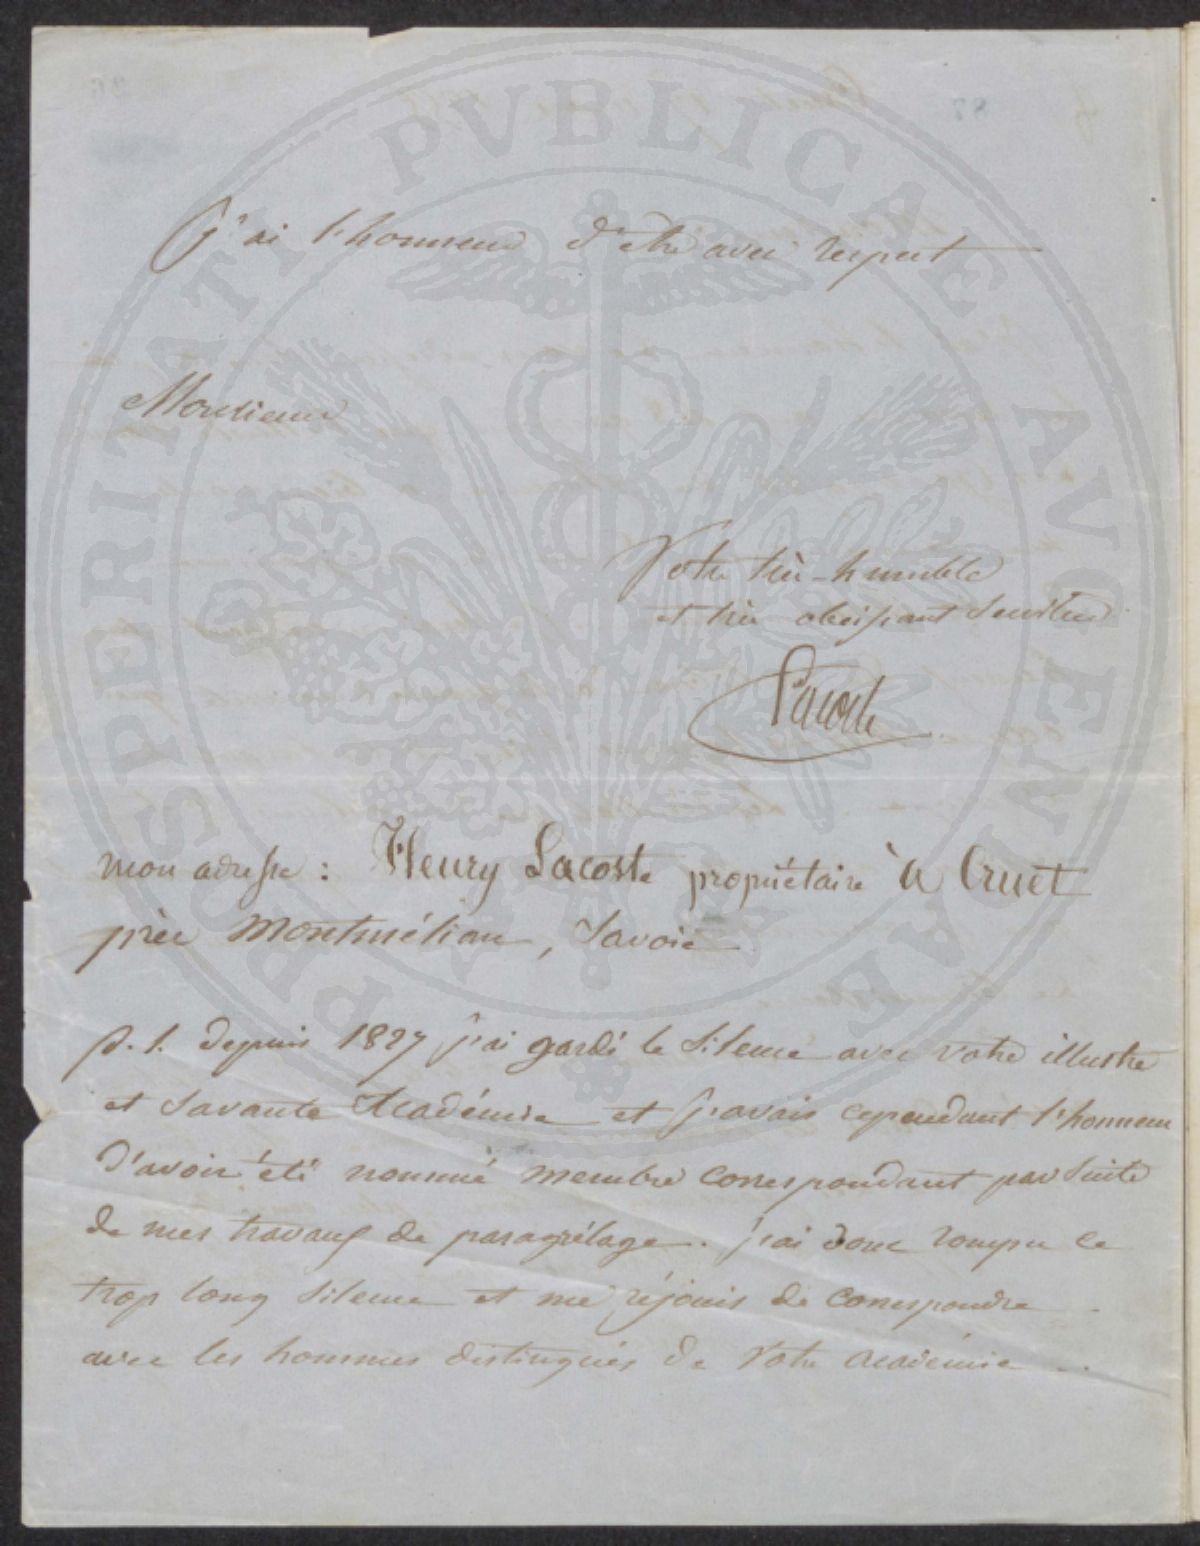 j'ai l'honneur d'etre avec respect
Monsieur
Votre très-humble
et très obeissant Serviteur
Lacoste
mon adresse : Fleury Lacoste propriétaire à Cruet
près Montmélian, Savoie
p. s. depuis 1827 j'ai gardé le silence avec votre illustre
et Savante Académie et j'avais cependant l'honneur
d'avoir été nommé membre correspondant par Suite
de mes travaux de paragrélage. j'ai donc rompu ce
trop long Silence et me réjouis de correspondre
avec les hommes distingués de Votre académie
PROSPERITATI PVBLICAE AVGENDAE